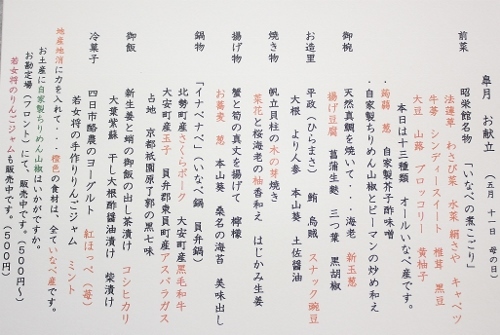 皐月 お献立 (五月 十一日 母の日)
前菜
昭栄館名物 「いなべの煮こごり」
法蓮草 わさび菜 水菜 絹さや キャベツ
牛蒡 シンディースイート 椎茸 黒豆
大豆 山蕗 ブロッコリー 黄柚子
本日は十三種類 オールいなべ産です。
・蒟蒻 葱 自家製芥子酢味噌
・自家製ちりめん山椒とピーマンの炒め和え
御椀
天然真鯛を焼いて・・・ 海老 新玉葱
揚げ豆腐 菖蒲生麩 三つ葉 黒胡椒
お造里
平政(ひらまさ) 鮪 烏賊 スナック豌豆
大根 より人参 本山葵 土佐醤油
焼き物
帆立貝柱の木の芽焼き
菜花と桜海老の柚香和え はじかみ生姜
揚げ物
蟹と筍の真丈を揚げて 檸檬
お蕎麦 葱 本山葵 桑名の海苔 美味出し
鍋物
「イナベナベ」(いなべ鍋 員弁鍋)
北勢町産さくらポーク 大安町産黒毛和牛
大安町産玉子 員弁郡東員町産アスパラガス
占地 京都祇園原了郭の黒七味
御飯
新生姜と蛸の御飯の出し茶漬け コシヒカリ
大葉紫蘇 干し大根酢醤油漬け 柴漬け
冷菓子
四日市酪農のヨーグルト 紅ほっぺ(苺)
若女将の手作りりんごジャム ミント
地産地消に力を入れて・・・橙色の食材は、全ていなべ産です。
お土産に自家製ちりめん山椒はいかがですか。
お勘定場(フロント)にて、販売中です。(500円~)
若女将のりんごジャムも販売中です。(500円)